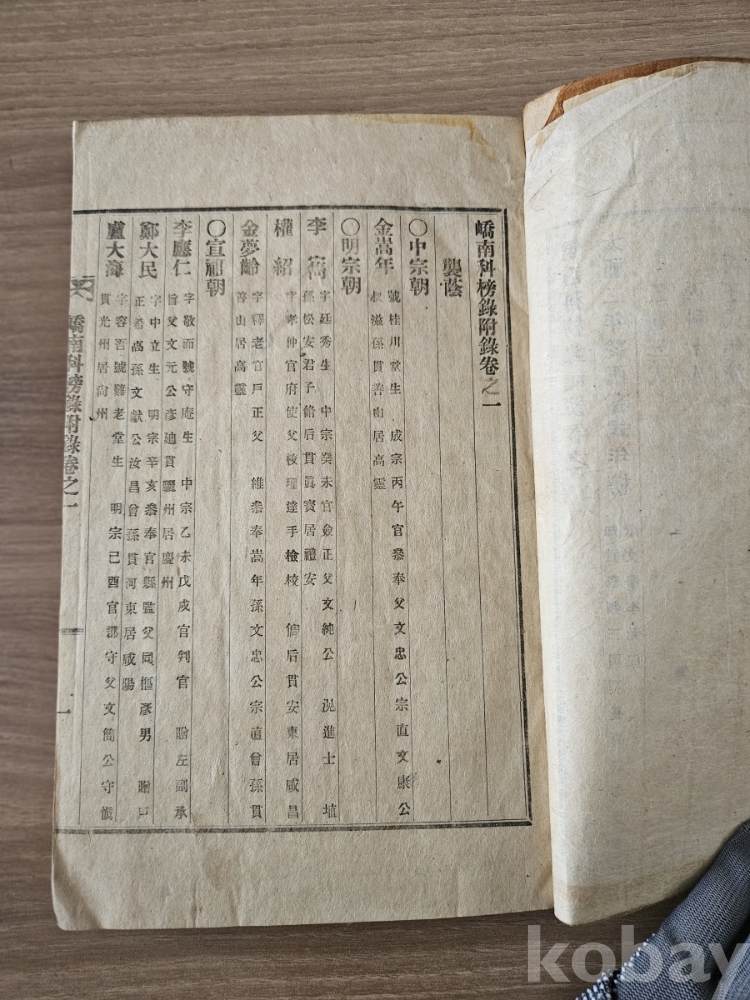 嶠南科榜錄附錄卷之一
襲蔭
〇中宗朝
金嵩年 號桂川堂生 成宗丙午官叅奉父文忠公宗直文康公
叔滋孫貫善山居高靈
〇明宗朝
李寯 字廷秀生 中宗癸未官僉正父文純公 滉進士 埴
孫松安君子脩后貫眞寶居禮安
權紹 字孝仲官府使父
檢校 后貫安東居咸昌
金夢齡 字釋老官戶正父 維叅奉嵩年孫文忠公宗直曾孫貫
善山居高靈
〇宣祖朝
李應仁 字敬而號守庵生 中宗乙未戊戌官判官 贈左副承
旨父文元公彦迪貫驪州居慶州
鄭大民 字中立生 明宗辛亥叅奉官縣監父同樞彦男 贈戶
正希卨孫文獻公汝昌曾孫貫河東居咸陽
盧大海 字容吾號難老堂生 明宗己酉官郡守父文簡公守愼
貫光州居尙州
嶠南科榜錄附錄卷之一
一
kobay